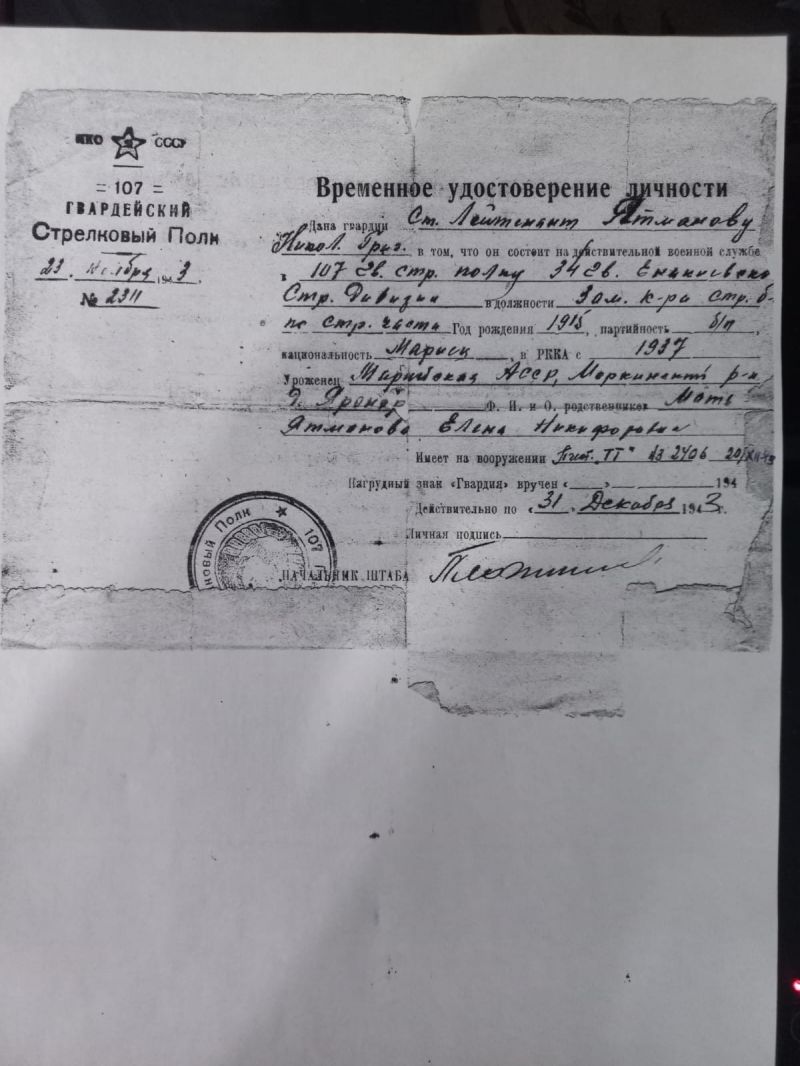 НКО СССР
= 107 =
ГВАРДЕЙСКИЙ
Стрелковый Полк
23 ноября 1943 г.
№ 2311
Временное удостоверение личности
Дана гвардии Ст. Лейтенант Ятманову
Никол. Григ. в том, что он состоит на действительной военной службе
в 107 Гв. стр. полку 34 Гв. Енакиевско
Стр. Дивизии в должности Зам. к-ра стр. б-
по стр. части Год рождения 1915, партийность б/п,
национальность Мариец, в РККА с 1937
Уроженец Марийская АССР, Моркинский р-н
Ф. И. и О. родственников Мать
Ятманова Елена Никифоровна
Имеет на вооружении Пист. "ТТ" № 2406
Нагрудный знак «Гвардия» вручен « » 194
Действительно по «31» Декабря 1943 г.
Личная подпись
НАЧАЛЬНИК ШТАБА
ковый Полк ★ 107 Г